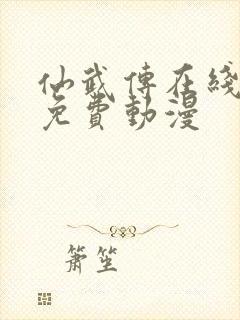 仙武傳在綫
免費動漫
簫笙